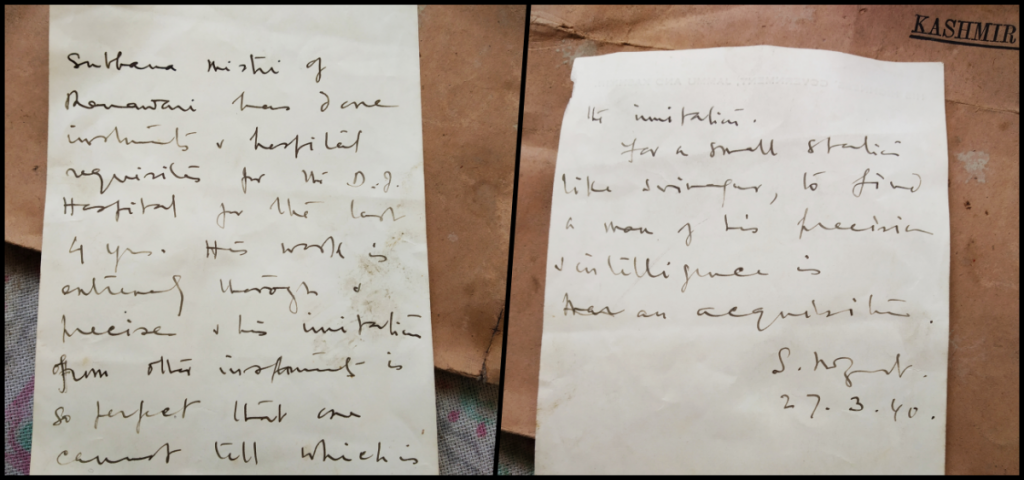 Subhana mistri of
Renawari has done
instruments & hospital
requisites for the D.J.
Hospital for the last
4 yrs. His work is
extremely thorough &
precise & his imitation
from other instruments is
so perfect that one
cannot tell which is
KASHMIR
the imitation.
For a small station
like Srinagar, to find
a man of his precision
& intelligence is
an acquisition.
S.
27.3.40.